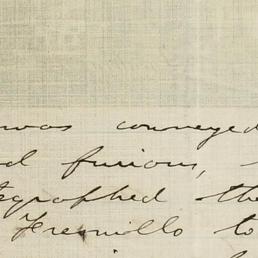 was conveyed
furious,
graphed the
Fresnillo to